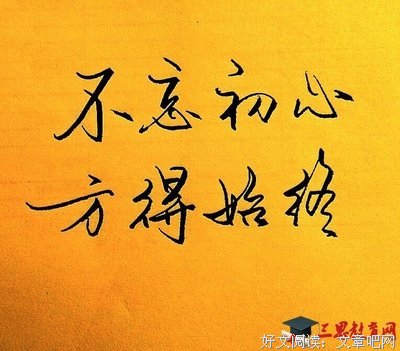 不忘初心
方得始终
三思教育网
好文阅读：文章吧网